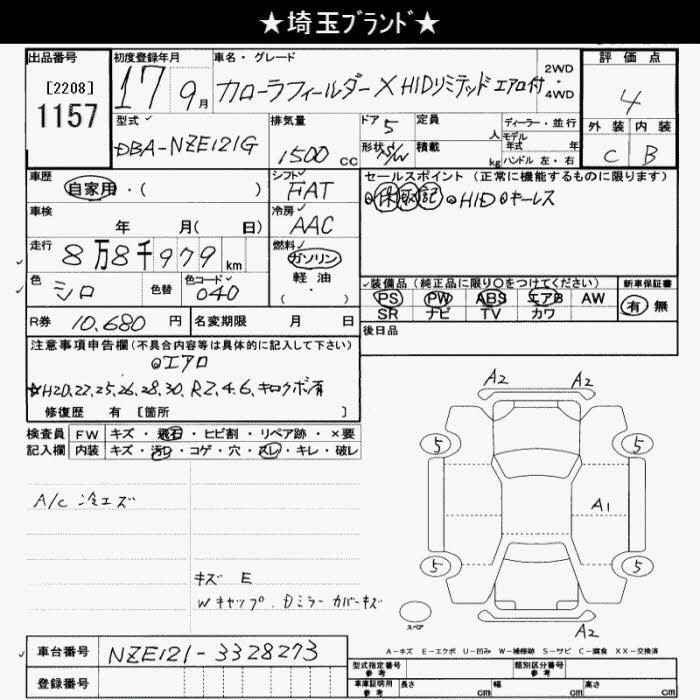 ★埼玉ブランド★
出品番号 初度登録年月 車名・グレード 評価点
[2208] 1157
17 9月 カローラフィールダー X HIDリミテッド エアロ付 2WD・4WD 4
型式 DBA-NZE121G 排気量 1500cc ドア 5 定員 人 ディーラー・並行
形状 S/W 積載 kg モデル年式 年 ハンドル 左・右
外装 内装
C B
車歴 自家用・( ) シフト FAT セールスポイント (正常に機能するものに限ります)
保 取 記 HID キーレス
車検 年 月( 日) 冷房 AAC
走行 8万8千979km 燃料 ガソリン
軽油
( ・ )
色 シロ 色替 色コード 040
装備品 (純正品に限り〇をつけてください) 新車保証書
PS PW ABS エアB AW 有 無
SR ナビ TV カワ
R券 10,680円 名変期限 月 日 後日品
注意事項申告欄(不具合内容等は具体的に記入して下さい)
エアロ
☆H20,22,25,26,28,30, R2,4,6,キロクボ有
修復歴 有 [箇所 ]
検査員 FW キズ・飛石・ヒビ割・リペア跡・×要
記入欄 内装 キズ・汚れ・コゲ・穴・スレ・キレ・破レ
A2 A2
5 5
A1
5 5
A2
A/C 冷エズ
キズ E
Wキャップ、Dミラーカバーキズ
スペア
A-キズ E-エクボ U-凹み W-補修跡 S-サビ C-腐食 XX-交換済
車台番号 NZE121-3328273
登録番号
型式指定番号 参考 類別区分番号 参考
車庫証明用 参考 長さ cm 幅 cm 高さ cm